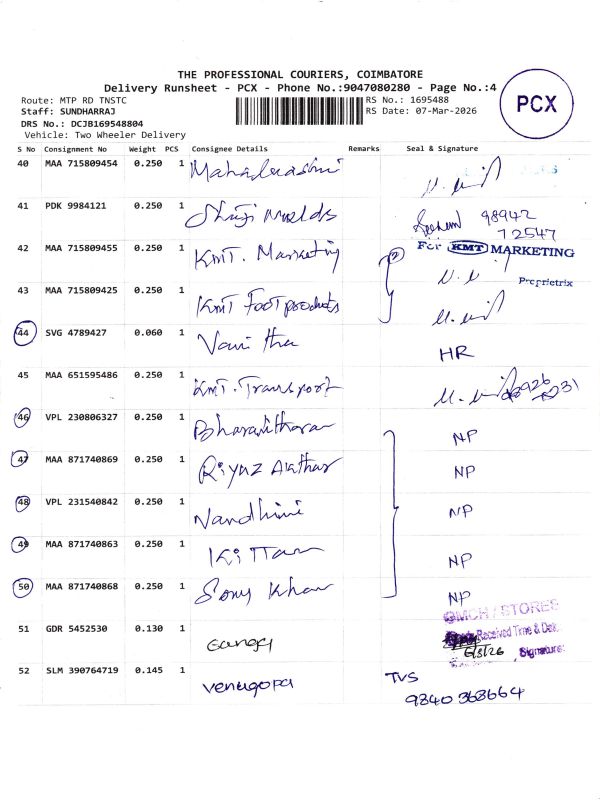 THE PROFESSIONAL COURIERS, COIMBATORE
Delivery Runsheet - PCX - Phone No.:9047080280 - Page No.:4
Route: MTP RD TNSTC
RS No.: 1695488
PCX
Staff: SUNDHARRAJ
RS Date: 07-Mar-2026
DRS No.: DCJB169548804
Vehicle: Two Wheeler Delivery
S No Consignment No Weight PCS Consignee Details Remarks Seal & Signature
40 MAA 715809454 0.250 1
41 PDK 9984121 0.250 1 98942
72547
42 MAA 715809455 0.250 1 KMT. Marketing For KMT MARKETING
Proprietrix
43 MAA 715809425 0.250 1 KMT Foot products
44 SVG 4789427 0.060 1 Vanitha HR
45 MAA 651595486 0.250 1 KMT. Transport
46 VPL 230806327 0.250 1 NP
47 MAA 871740869 0.250 1 Riyaz NP
48 VPL 231540842 0.250 1 Nandhini NP
49 MAA 871740863 0.250 1 NP
50 MAA 871740868 0.250 1 Sony Khan NP
51 GDR 5452530 0.130 1 STORES
Received Time & Date
6/3/26 Signature:
52 SLM 390764719 0.145 1 Venugopal TVS
9840368664